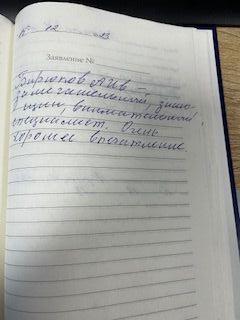 12
Заявление №
Бирюков А.И.В –
замечательный, знаю-
щий, внимательный
специалист. Очень
хорошее впечатление.